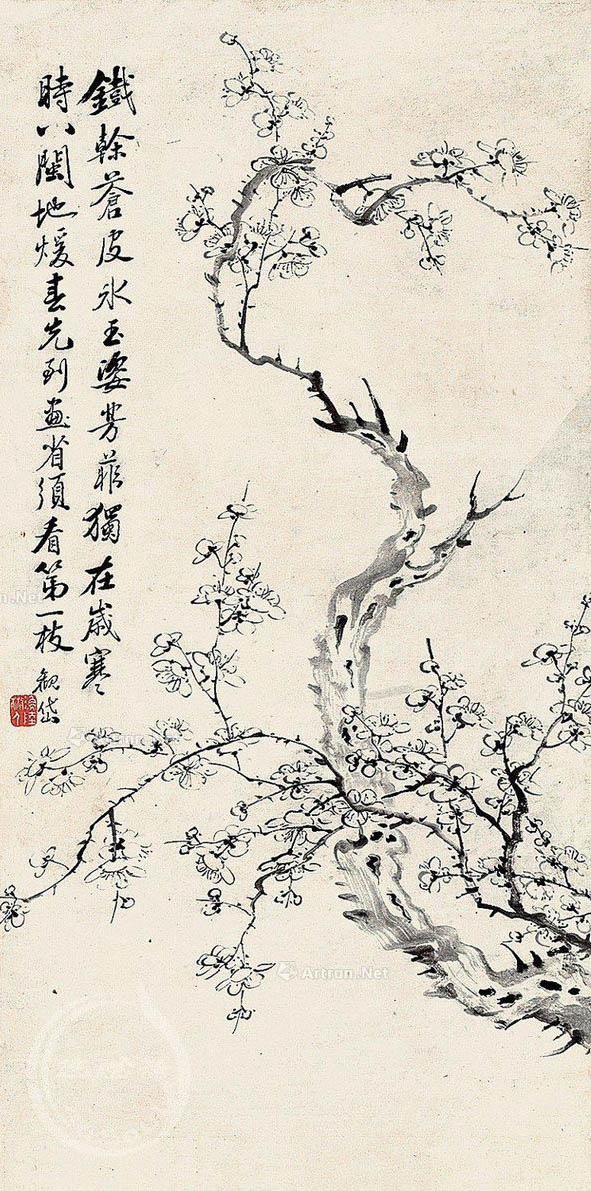 鐵榦蒼皮氷玉姿芳菲獨在歲寒
時八閩地煖春先到畫省須看第一枝 觀岱
Artron.Net